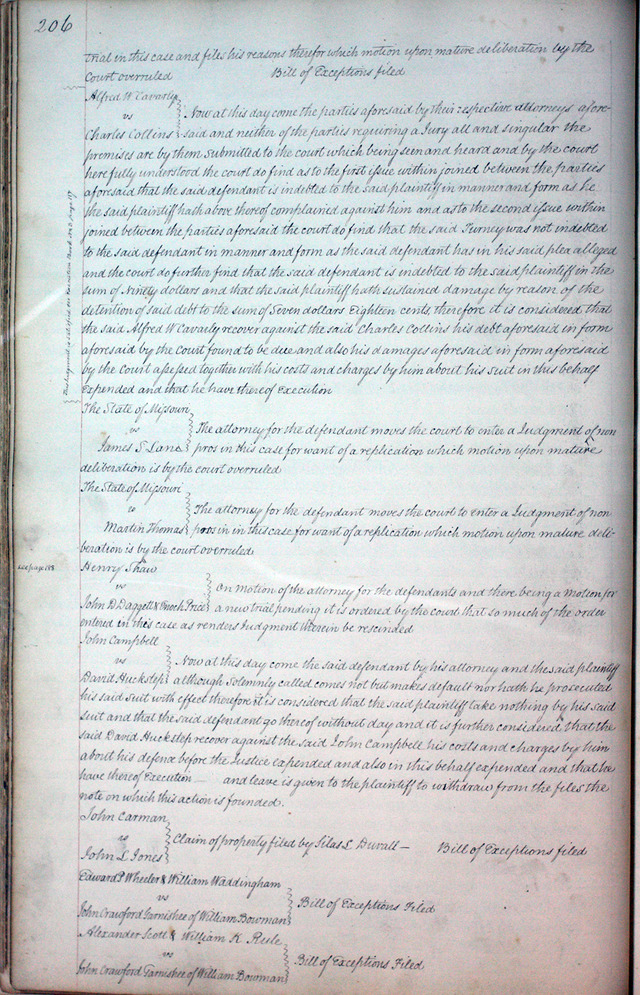 206
trial in this case and files his reasons therefor which motion upon mature deliberation by the
Court overruled Bill of Exceptions filed
Alfred W Cavarly
vs
Now at this day come the parties aforesaid by their respective attorneys afore-
Charles Collins said and neither of the parties requiring a Jury all and singular the
premises are by them submitted to the court which being seen and heard and by the court
here fully understood the court do find as to the first issue within joined between the parties
aforesaid that the said defendant is indebted to the said plaintiff in manner and form as he
the said plaintiff hath above thereof complained against him and as to the second issue within
joined between the parties aforesaid the court do find that the said Turney was not indebted
to the said defendant in manner and form as the said defendant has in his said plea alleged
and the court do further find that the said defendant is indebted to the said plaintiff in the
sum of Ninety dollars and that the said plaintiff hath sustained damage by reason of the
detention of said debt to the sum of Seven dollars Eighteen cents, therefore it is considered that
the said Alfred W Cavarly recover against the said Charles Collins his debt aforesaid in form
aforesaid by the Court found to be due and also his damages aforesaid in form aforesaid
by the Court assessed together with his costs and charges by him about his Suit in this behalf
Expended and that he have thereof Execution
The State of Missouri
vs
The attorney for the defendant moves the court to enter a Judgment of non
James S Lane pros in this case for want of a replication which motion upon mature
deliberation is by the court overruled
The State of Missouri
vs
The attorney for the defendant moves the court to enter a Judgment of non
Martin Thomas pros in in this case for want of a replication which motion upon mature deli-
beration is by the court overruled
see page 188
Henry Shaw
vs
On motion of the attorney for the defendants and there being a motion for
John D Daggett & Enoch Price a new trial pending it is ordered by the court that so much of the order
entered in this case as renders Judgment therein be rescinded
John Campbell
vs
Now at this day come the said defendant by his attorney and the said plaintiff
David Huckstep although solemnly called comes not but makes default nor hath he prosecuted
his said suit with effect therefore it is considered that the said plaintiff take nothing by his said
suit and that the said defendant go thereof without day and it is further considered that the
said David Huckstep recover against the said John Campbell his costs and charges by him
about his defence before the Justice expended and also in this behalf expended and that he
have thereof Execution — and leave is given to the plaintiff to withdraw from the files the
note on which this action is founded.
John Carman
vs
Claim of property filed by Silas L. Duvall — Bill of Exceptions filed
John L Jones
Edward P Wheeler & William Waddingham
vs
Bill of Exceptions Filed
John Crawford Garnishee of William Bowman
Alexander Scott & William K Rule
vs
Bill of Exceptions Filed
John Crawford Garnishee of William Bowman